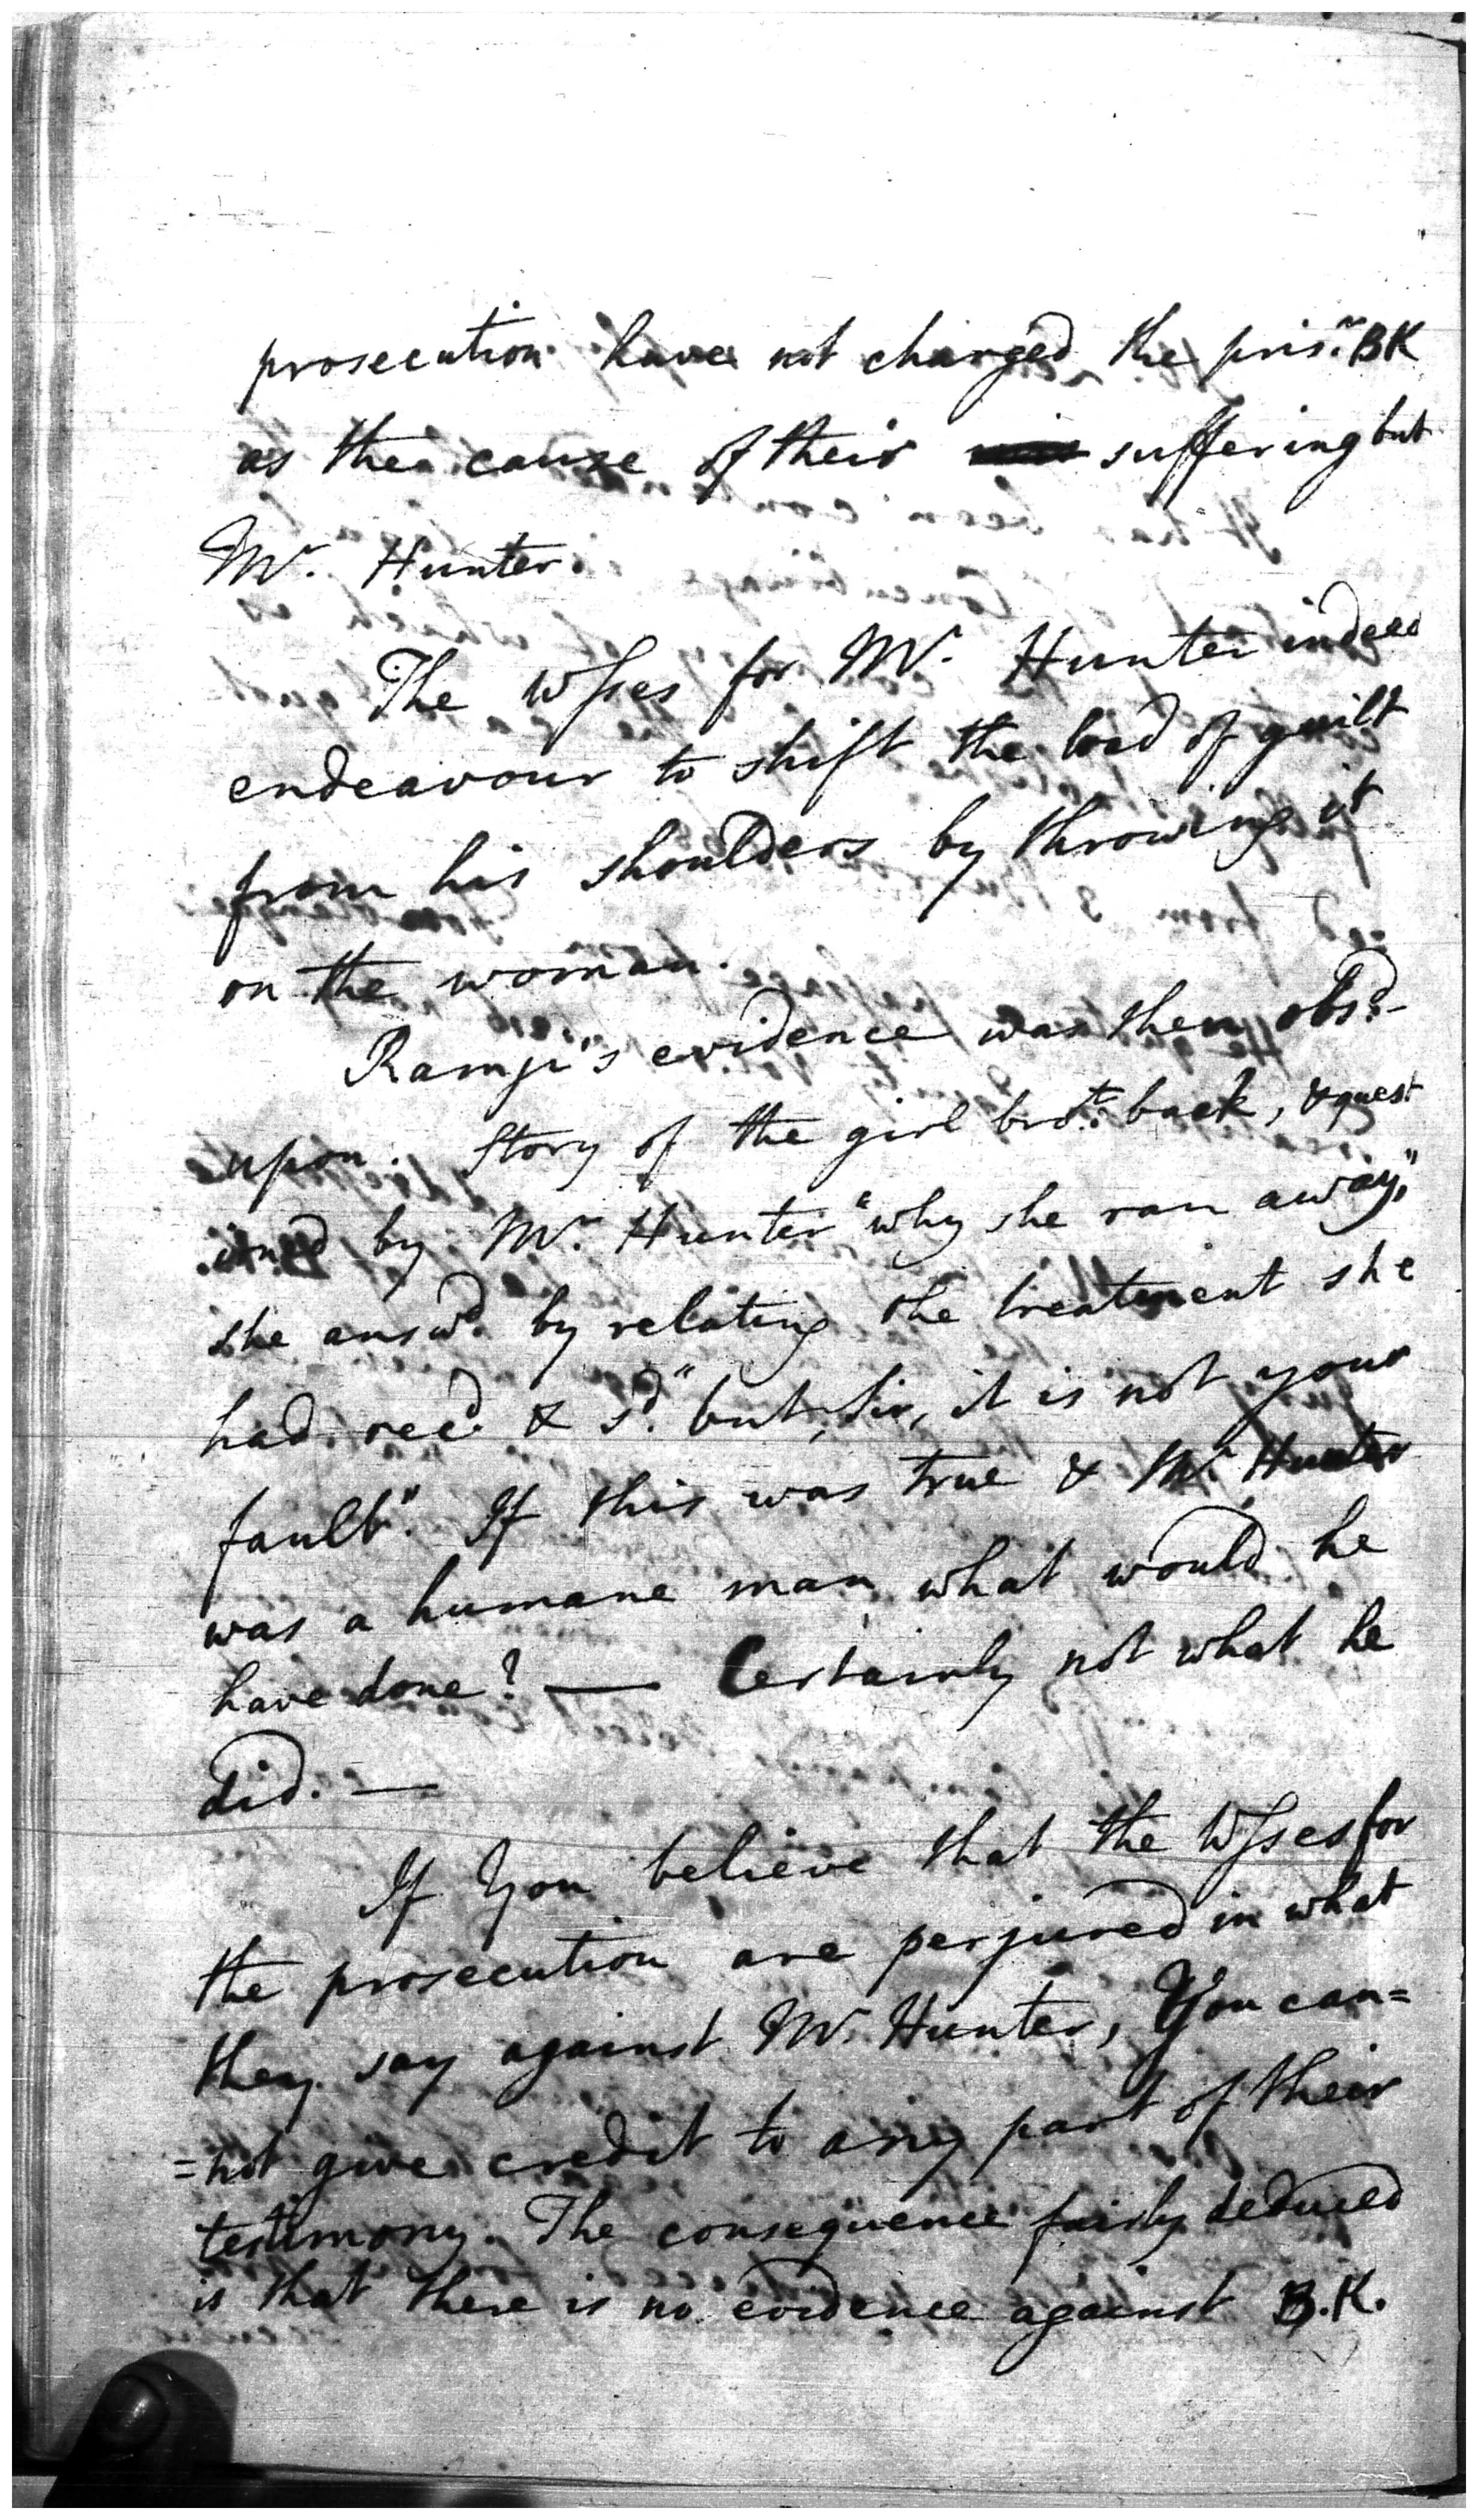 prosecution have not charged the pris.r BK
as the cause of their suffering but
Mr. Hunter.
The Wsses for Mr. Hunter indeed
endeavour to shift the load of guilt
from his shoulders by throwing it
on the woman.
Ramji's evidence was then obsd.
upon. Story of the girl brot. back, & quest
ioned by Mr. Hunter "why she ran away,"
she answd. by relating the treatment she
had recd. & sd. "but, Sir, it is not your
fault". If this was true & Mr. Hunter
was a humane man, what would he
have done? — Certainly not what he
did. —
If You believe that the Wsses for
the prosecution are perjured in what
they say against Mr. Hunter, You can=
=not give credit to any part of their
testimony. The consequence fairly deduced
is that there is no evidence against B.K.